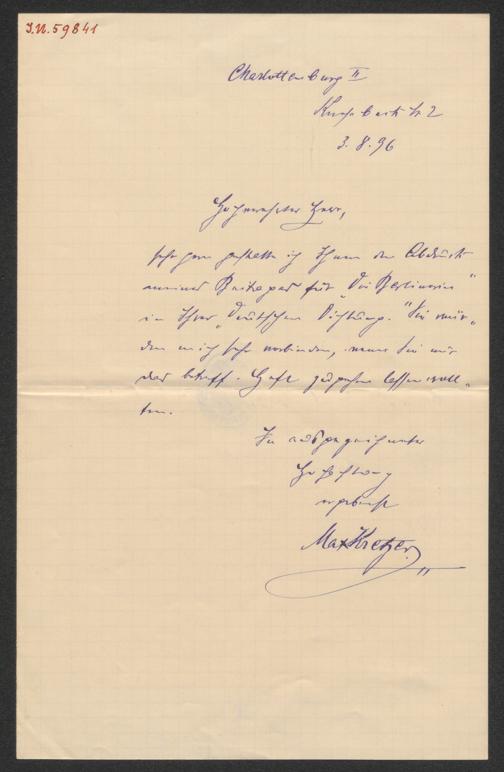 I.N. 59841
Charlottenburg II
Knesebeckstr 2
3. 8. 96
Hochverehrter Herr,
sehr gern gestatte ich Ihnen den Abdruck
meines Beitrages für „Die Berlinerin"
in Ihrer „Deutschen Dichtung." Sie wür-
den mich sehr verbinden, wenn Sie mir
das betreff. Heft zugehen lassen woll-
ten.
In ausgezeichneter
Hochachtung
ergebenst
Max Kretzer